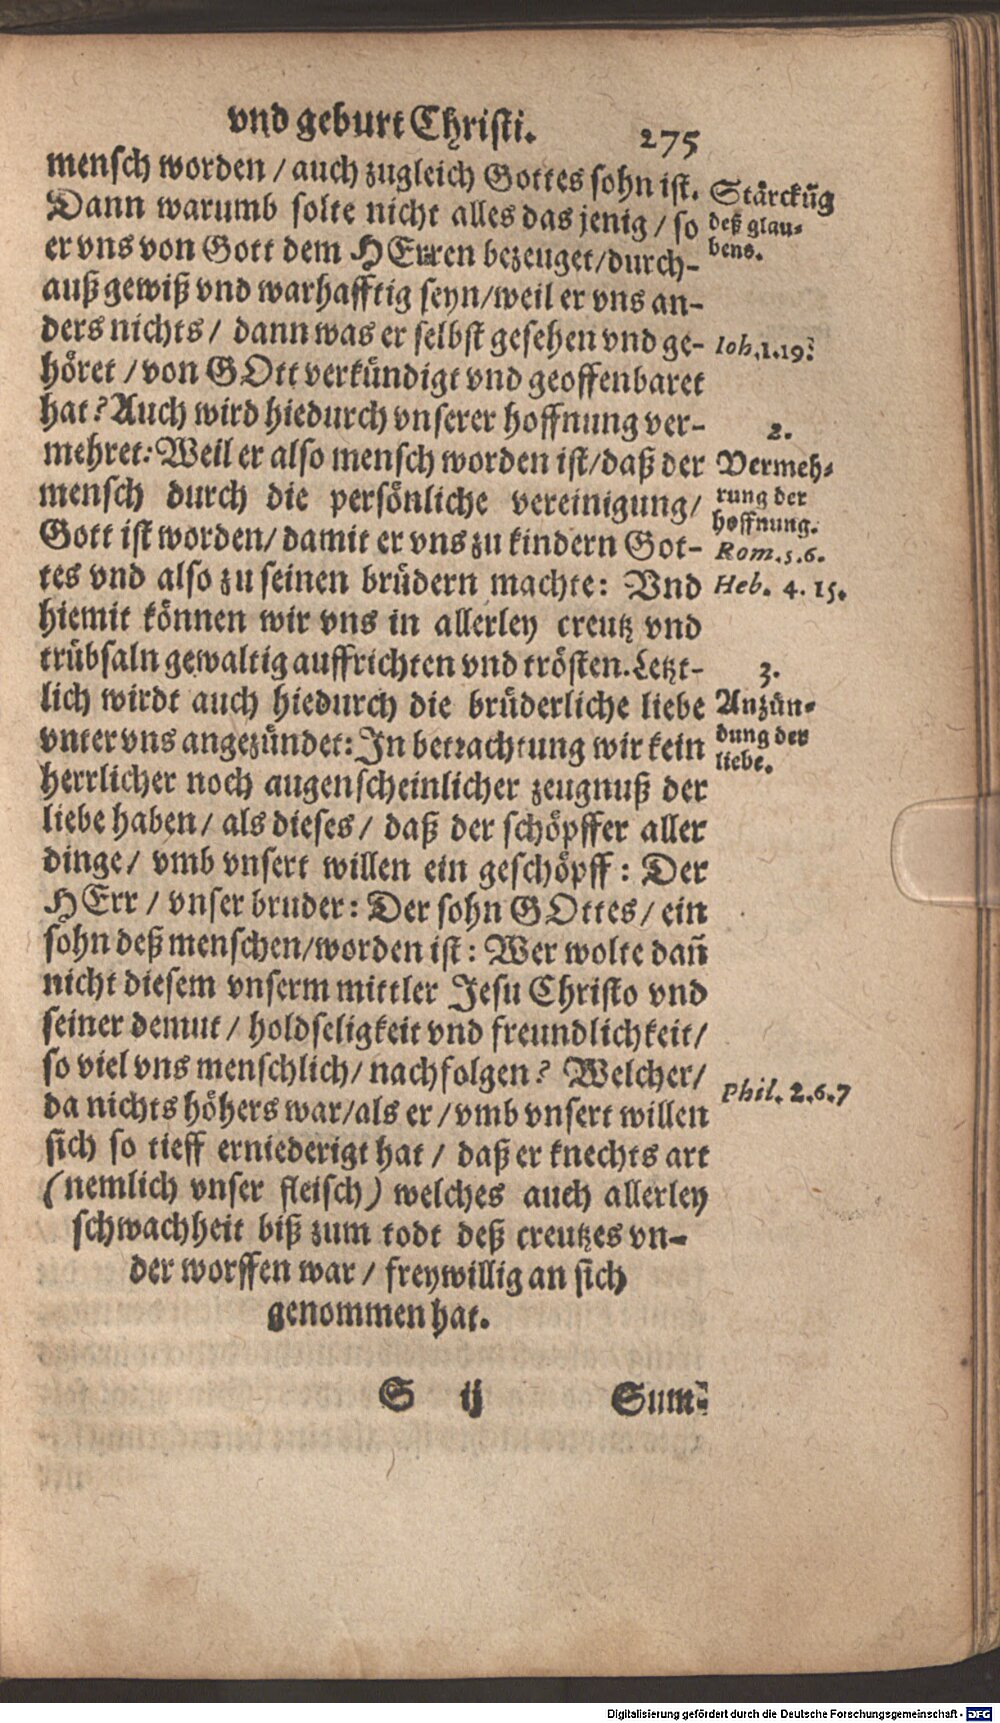 vnd geburt Christi. 275
mensch worden / auch zugleich Gottes sohn ist.
Dann warumb solte nicht alles das jenig / so
er vns von Gott dem HErren bezeuget/durch-
auß gewiß vnd warhafftig seyn/weil er vns an-
ders nichts / dann was er selbst gesehen vnd ge-
höret / von GOtt verkündigt vnd geoffenbaret
hat? Auch wird hiedurch vnserer hoffnung ver-
mehret: Weil er also mensch worden ist/daß der
mensch durch die persönliche vereinigung/
Gott ist worden/ damit er vns zu kindern Got-
tes vnd also zu seinen brüdern machte: Vnd
hiemit können wir vns in allerley creutz vnd
trübsaln gewaltig auffrichten vnd trösten. Letzt-
lich wirdt auch hiedurch die brüderliche liebe
vnter vns angezündet: In betrachtung wir kein
herrlicher noch augenscheinlicher zeugnuß der
liebe haben/ als dieses / daß der schöpffer aller
dinge/ vmb vnsert willen ein geschöpff: Der
HErr / vnser bruder: Der sohn GOttes/ ein
sohn deß menschen/worden ist: Wer wolte dañ
nicht diesem vnserm mittler Jesu Christo vnd
seiner demut / holdseligkeit vnd freundlichkeit/
so viel vns menschlich/ nachfolgen? Welcher/
da nichts höhers war/als er/vmb vnsert willen
sich so tieff erniederigt hat / daß er knechts art
(nemlich vnser fleisch) welches auch allerley
schwachheit biß zum todt deß creutzes vn-
der worffen war / freywillig an sich
genommen hat.
Stärckūg
deß glau-
bens.
Ioh.1.19.
2.
Vermeh-
rung der
hoffnung.
Rom.5.6.
Heb. 4. 15.
3.
Anzün-
dung der
liebe.
Phil. 2.6.7
S ij Sum-
Digitalisierung gefördert durch die Deutsche Forschungsgemeinschaft - DFG